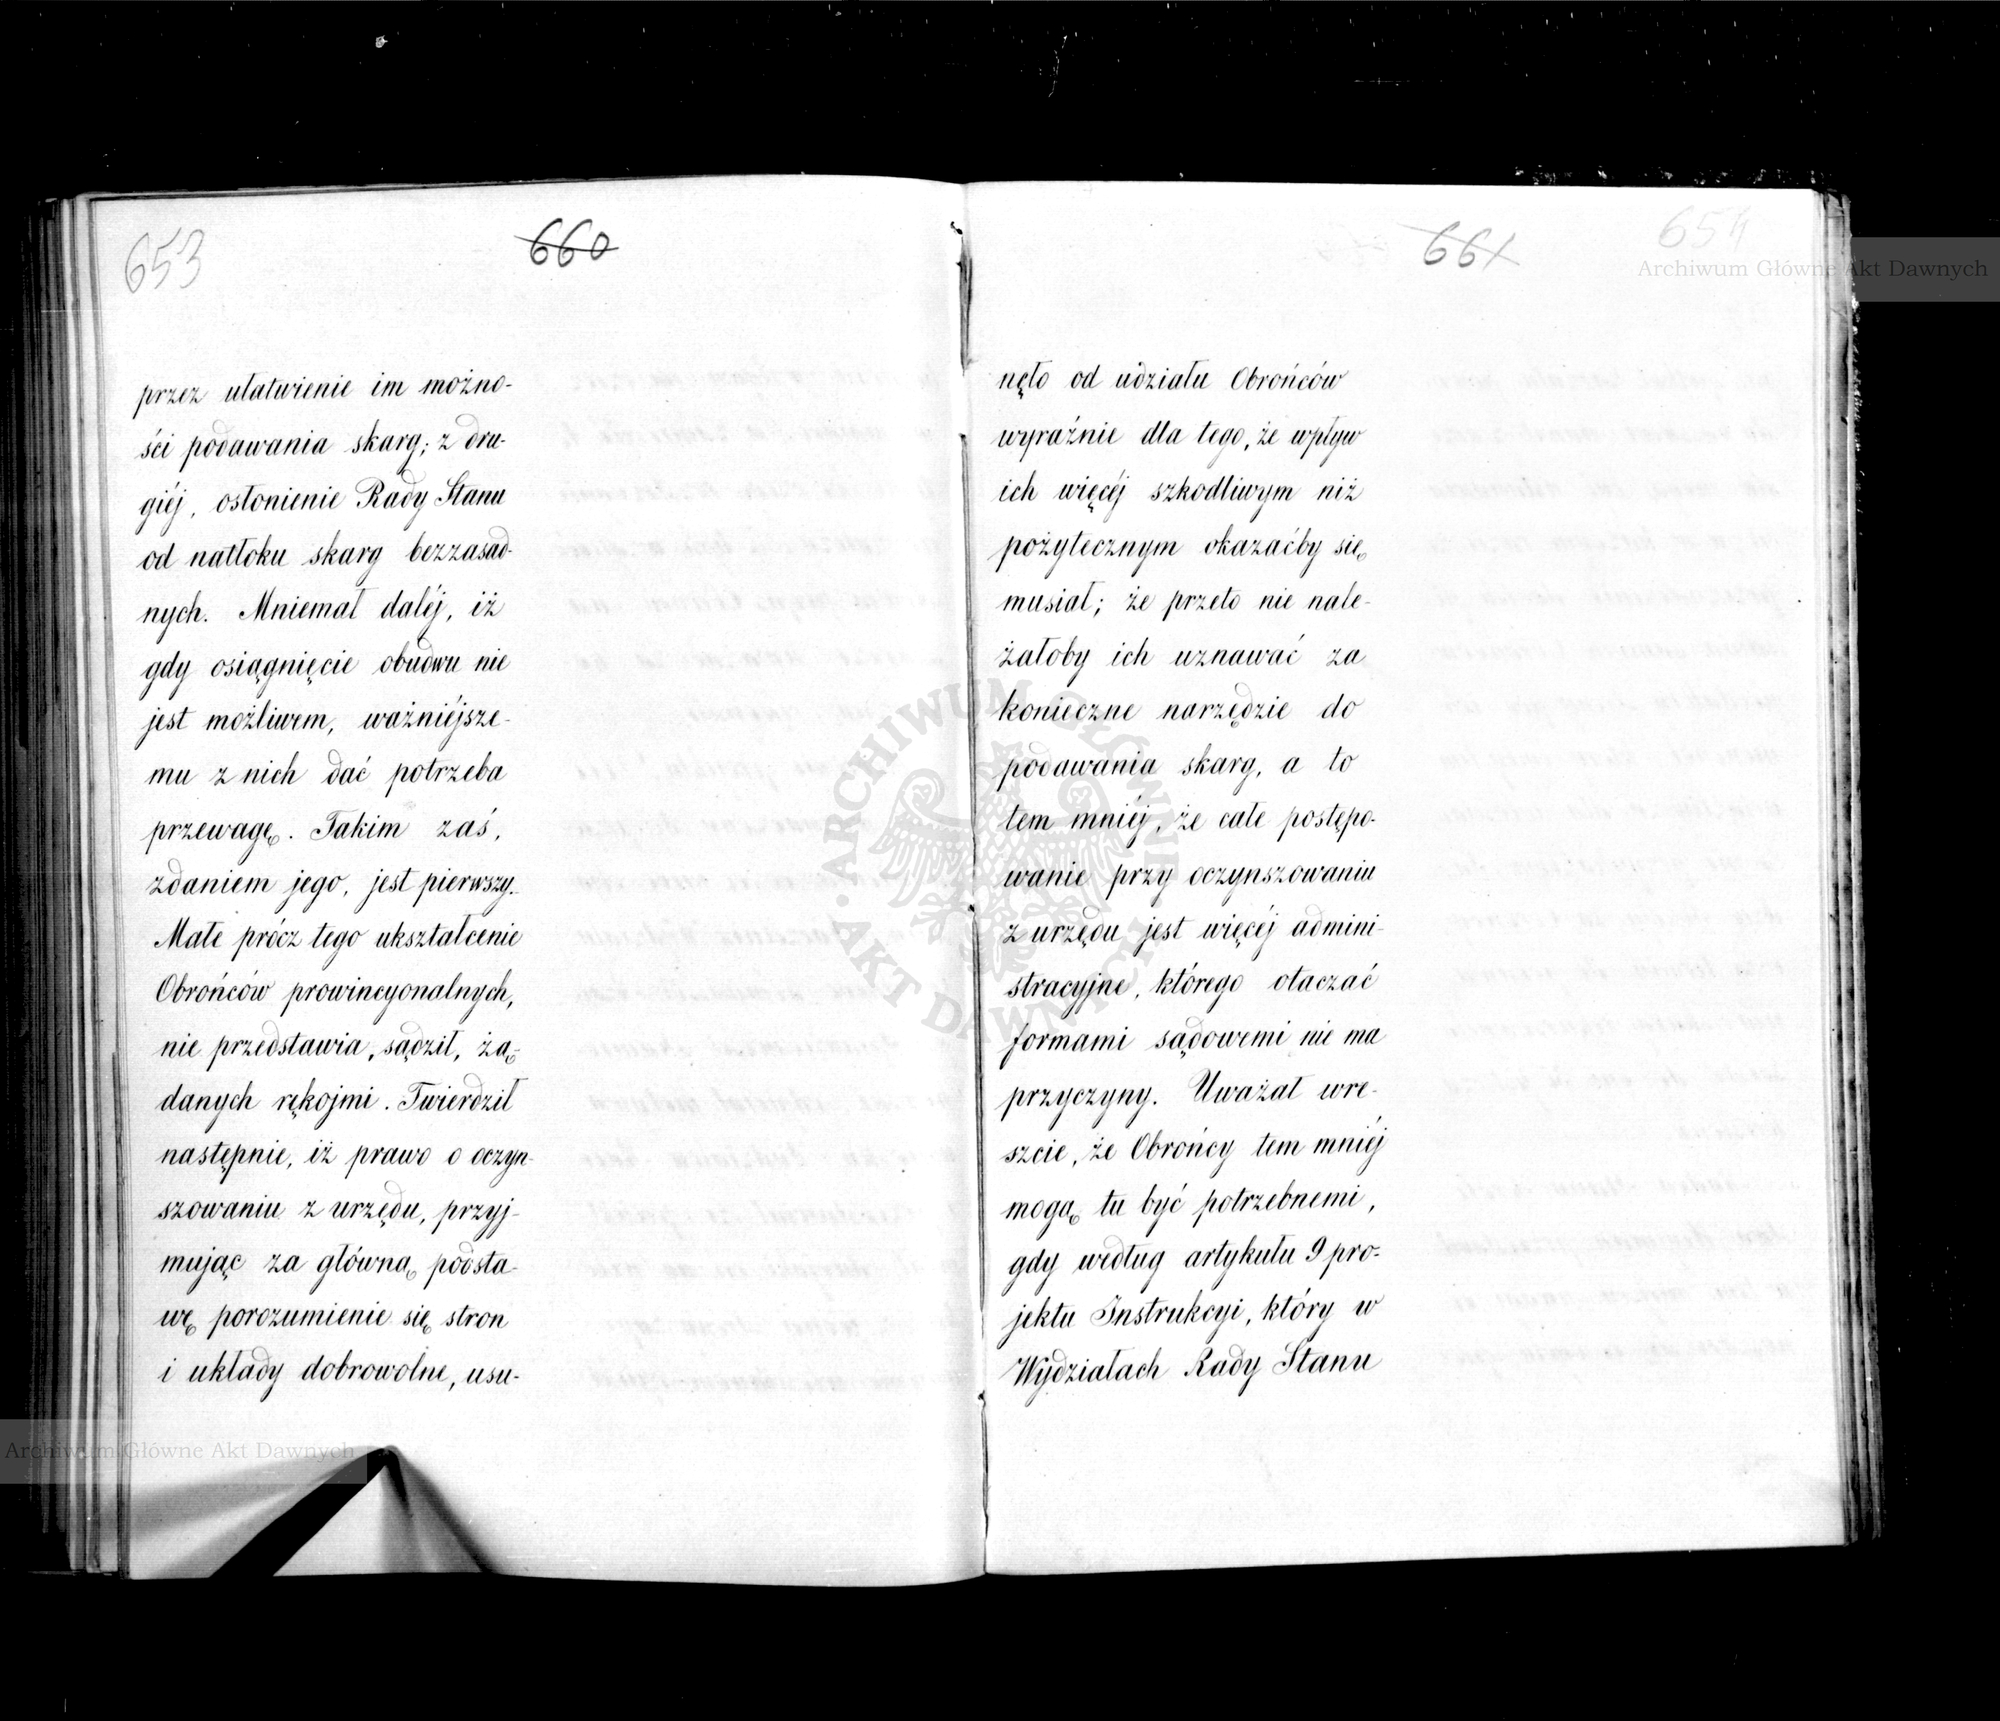 653
660
przez ułatwienie im możno-
ści podawania skarg; z dru-
giéj, osłonienie Rady Stanu
od natłoku skarg bezzasad-
nych. Mniemał daléj, iż
gdy osiągnięcie obudwu nie
jest możliwem, ważniéjsze-
mu z nich dać potrzeba
przewagę. Takim zaś,
zdaniem jego, jest pierwszy.
Małe prócz tego ukształcenie
Obrońców prowincyonalnych,
nie przedstawia, sądził, żą-
danych rękojmi. Twierdził
następnie, iż prawo o oczyn-
szowaniu z urzędu, przyj-
mując za główną podsta-
wę porozumienie się stron
i układy dobrowolne, usu-
661
654
nęło od udziału Obrońców
wyraźnie dla tego, że wpływ
ich więcéj szkodliwym niż
pożytecznym okazaćby się
musiał; że przeto nie nale-
żałoby ich uznawać za
konieczne narzędzie do
podawania skarg, a to
tem mniéj, że całe postępo-
wanie przy oczynszowaniu
z urzędu jest więcéj admini-
stracyjne, którego otaczać
formami sądowemi nie ma
przyczyny. Uważał wre-
szcie, że Obrońcy tem mniéj
mogą tu być potrzebnemi,
gdy według artykułu 9 pro-
jektu Instrukcyi, który w
Wydziałach Rady Stanu
Archiwum Główne Akt Dawnych
Archiwum Główne Akt Dawnych
ARCHIWUM GŁÓWNE AKT DAWNYCH